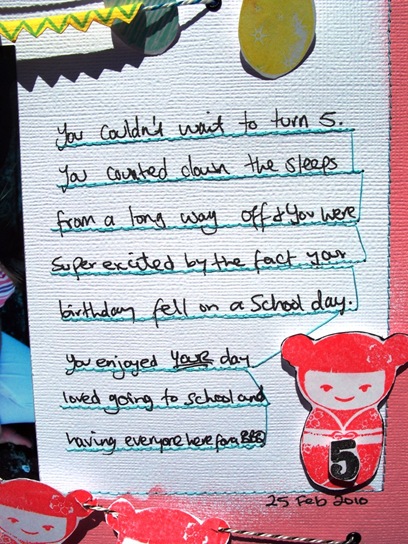 You couldn't wait to turn 5.
You counted down the sleeps
from a long way off & You were
super excited by the fact your
birthday fell on a School day.
You enjoyed YOUR day
loved going to school and
having everyone here for a BBQ
5
25 Feb 2010